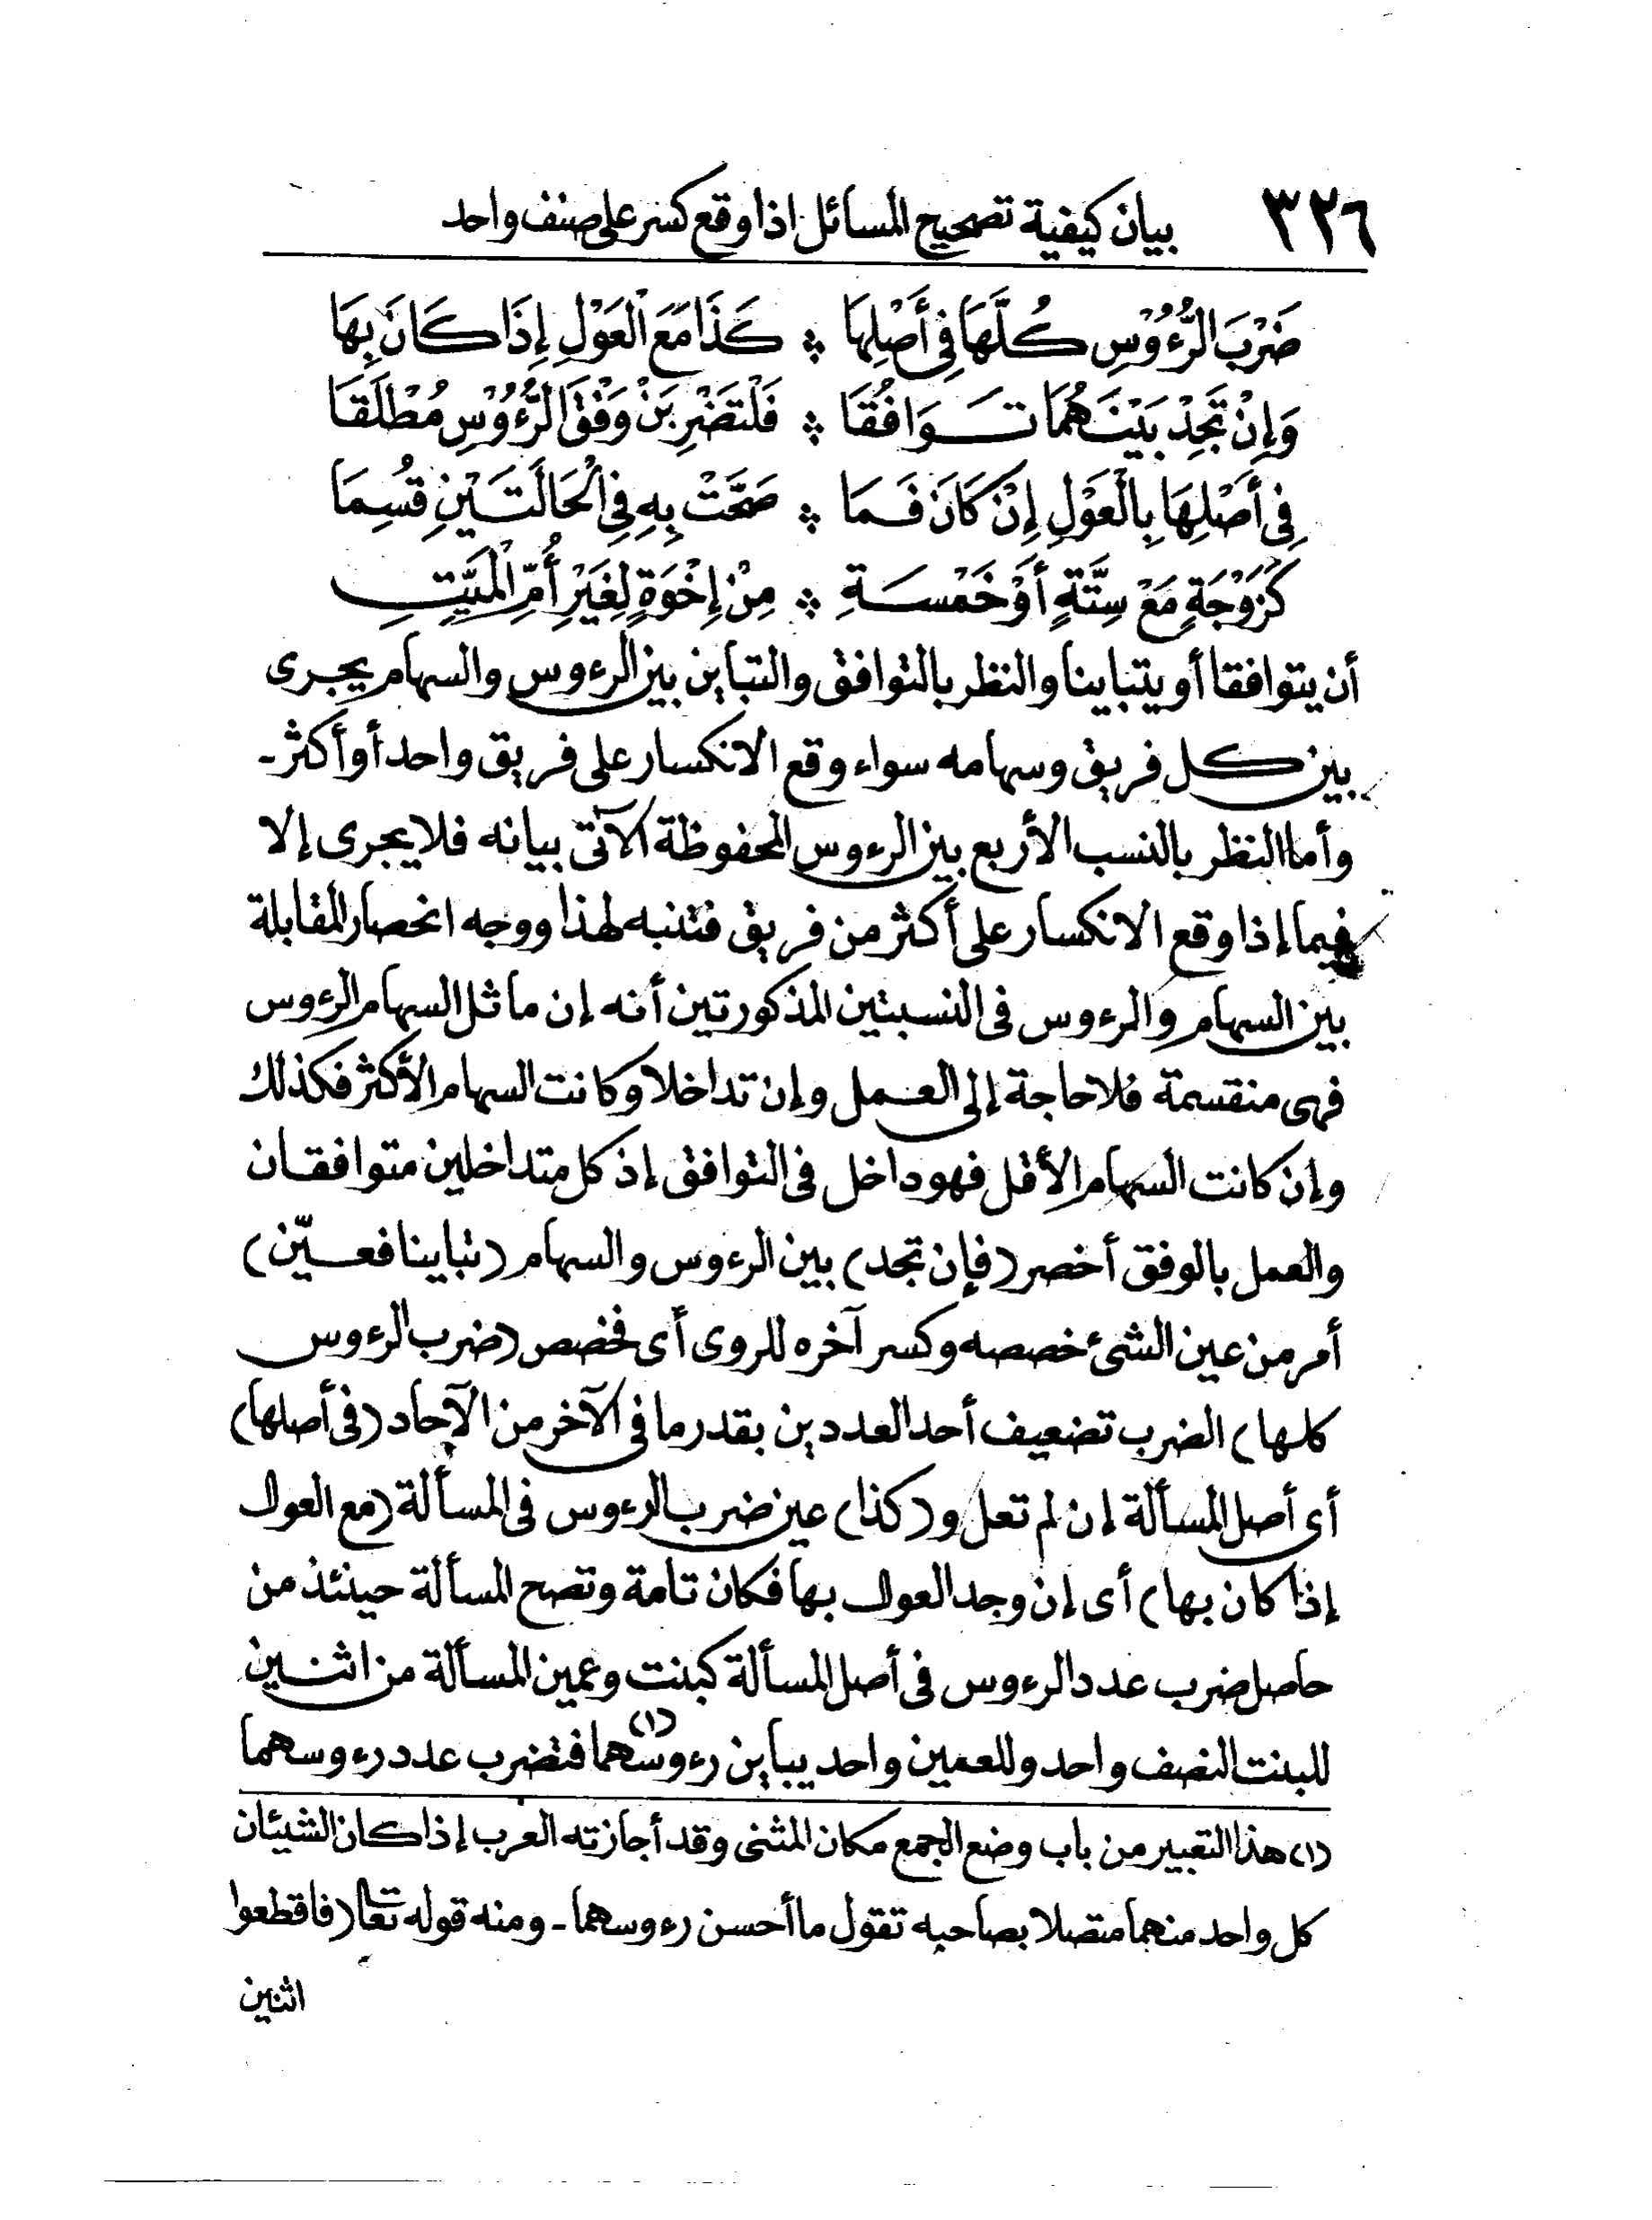 ٣٢٦ بيان كيفية تصحيح المسائل اذا وقع كسر على صنف واحد
ضَرْبَ الرُّءُوْسِ كُلِّهَا فِي أَصْلِهَا ⁘ كَذَا مَعَ الْعَوْلِ إِذَا كَانَ بِهَا
وَإِنْ تَجِدْ بَيْنَهُمَا تَوَافُقَا ⁘ فَلْتَضْرِبَنْ وَفْقَ الرُّءُوْسِ مُطْلَقَا
فِي أَصْلِهَا بِالْعَوْلِ إِنْ كَانَ فَمَا ⁘ صَحَّتْ بِهِ فِي الْحَالَتَيْنِ قُسِمَا
كَزَوْجَةٍ مَعْ سِتَّةٍ أَوْ خَمْسَةِ ⁘ مِنْ إِخْوَةٍ لِغَيْرِ أُمِّ الْمَيِّتِ
أن يتوافقا أو يتباينا والنظر بالتوافق والتباين بين الرءوس والسهام يجرى
بين كل فريق وسهامه سواء وقع الانكسار على فريق واحد أو أكثر ـ
وأما النظر بالنسب الأربع بين الرءوس المحفوظة الآتى بيانه فلا يجرى إلا
فيما إذا وقع الانكسار على أكثر من فريق فتنبه لهذا ووجه انحصار المقابلة
بين السهام والرءوس فى النسبتين المذكورتين أنه إن ماثل السهام الرءوس
فهى منقسمة فلا حاجة إلى العمل وإن تداخلا وكانت السهام الأكثر فكذلك
وإن كانت السهام الأقل فهو داخل فى التوافق إذ كل متداخلين متوافقان
والعمل بالوفق أخصر (فإن تجد) بين الرءوس والسهام (تباينا فعيّن)
أمر من عين الشئ خصصه وكسر آخره للروى أى فخصص (ضرب الرءوس
كلها) الضرب تضعيف أحد العددين بقدر ما فى الآخر من الآحاد (فى أصلها)
أى أصل المسألة إن لم تعل و(كذا) عين ضرب الرءوس فى المسألة (مع العول
إذا كان بها) أى إن وجد العول بها فكان تامة وتصح المسألة حينئذ من
حاصل ضرب عدد الرءوس فى أصل المسألة كبنت وعمين المسألة من اثنين
للبنت النصف واحد وللعمين واحد يباين رءوسهما (١) فتضرب عدد رءوسهما
(١) هذا التعبير من باب وضع الجمع مكان المثنى وقد أجازته العرب إذا كان الشيئان
كل واحد منهما متصلا بصاحبه تقول ما أحسن رءوسهما ـ ومنه قوله تعالى (فاقطعوا
اثنين